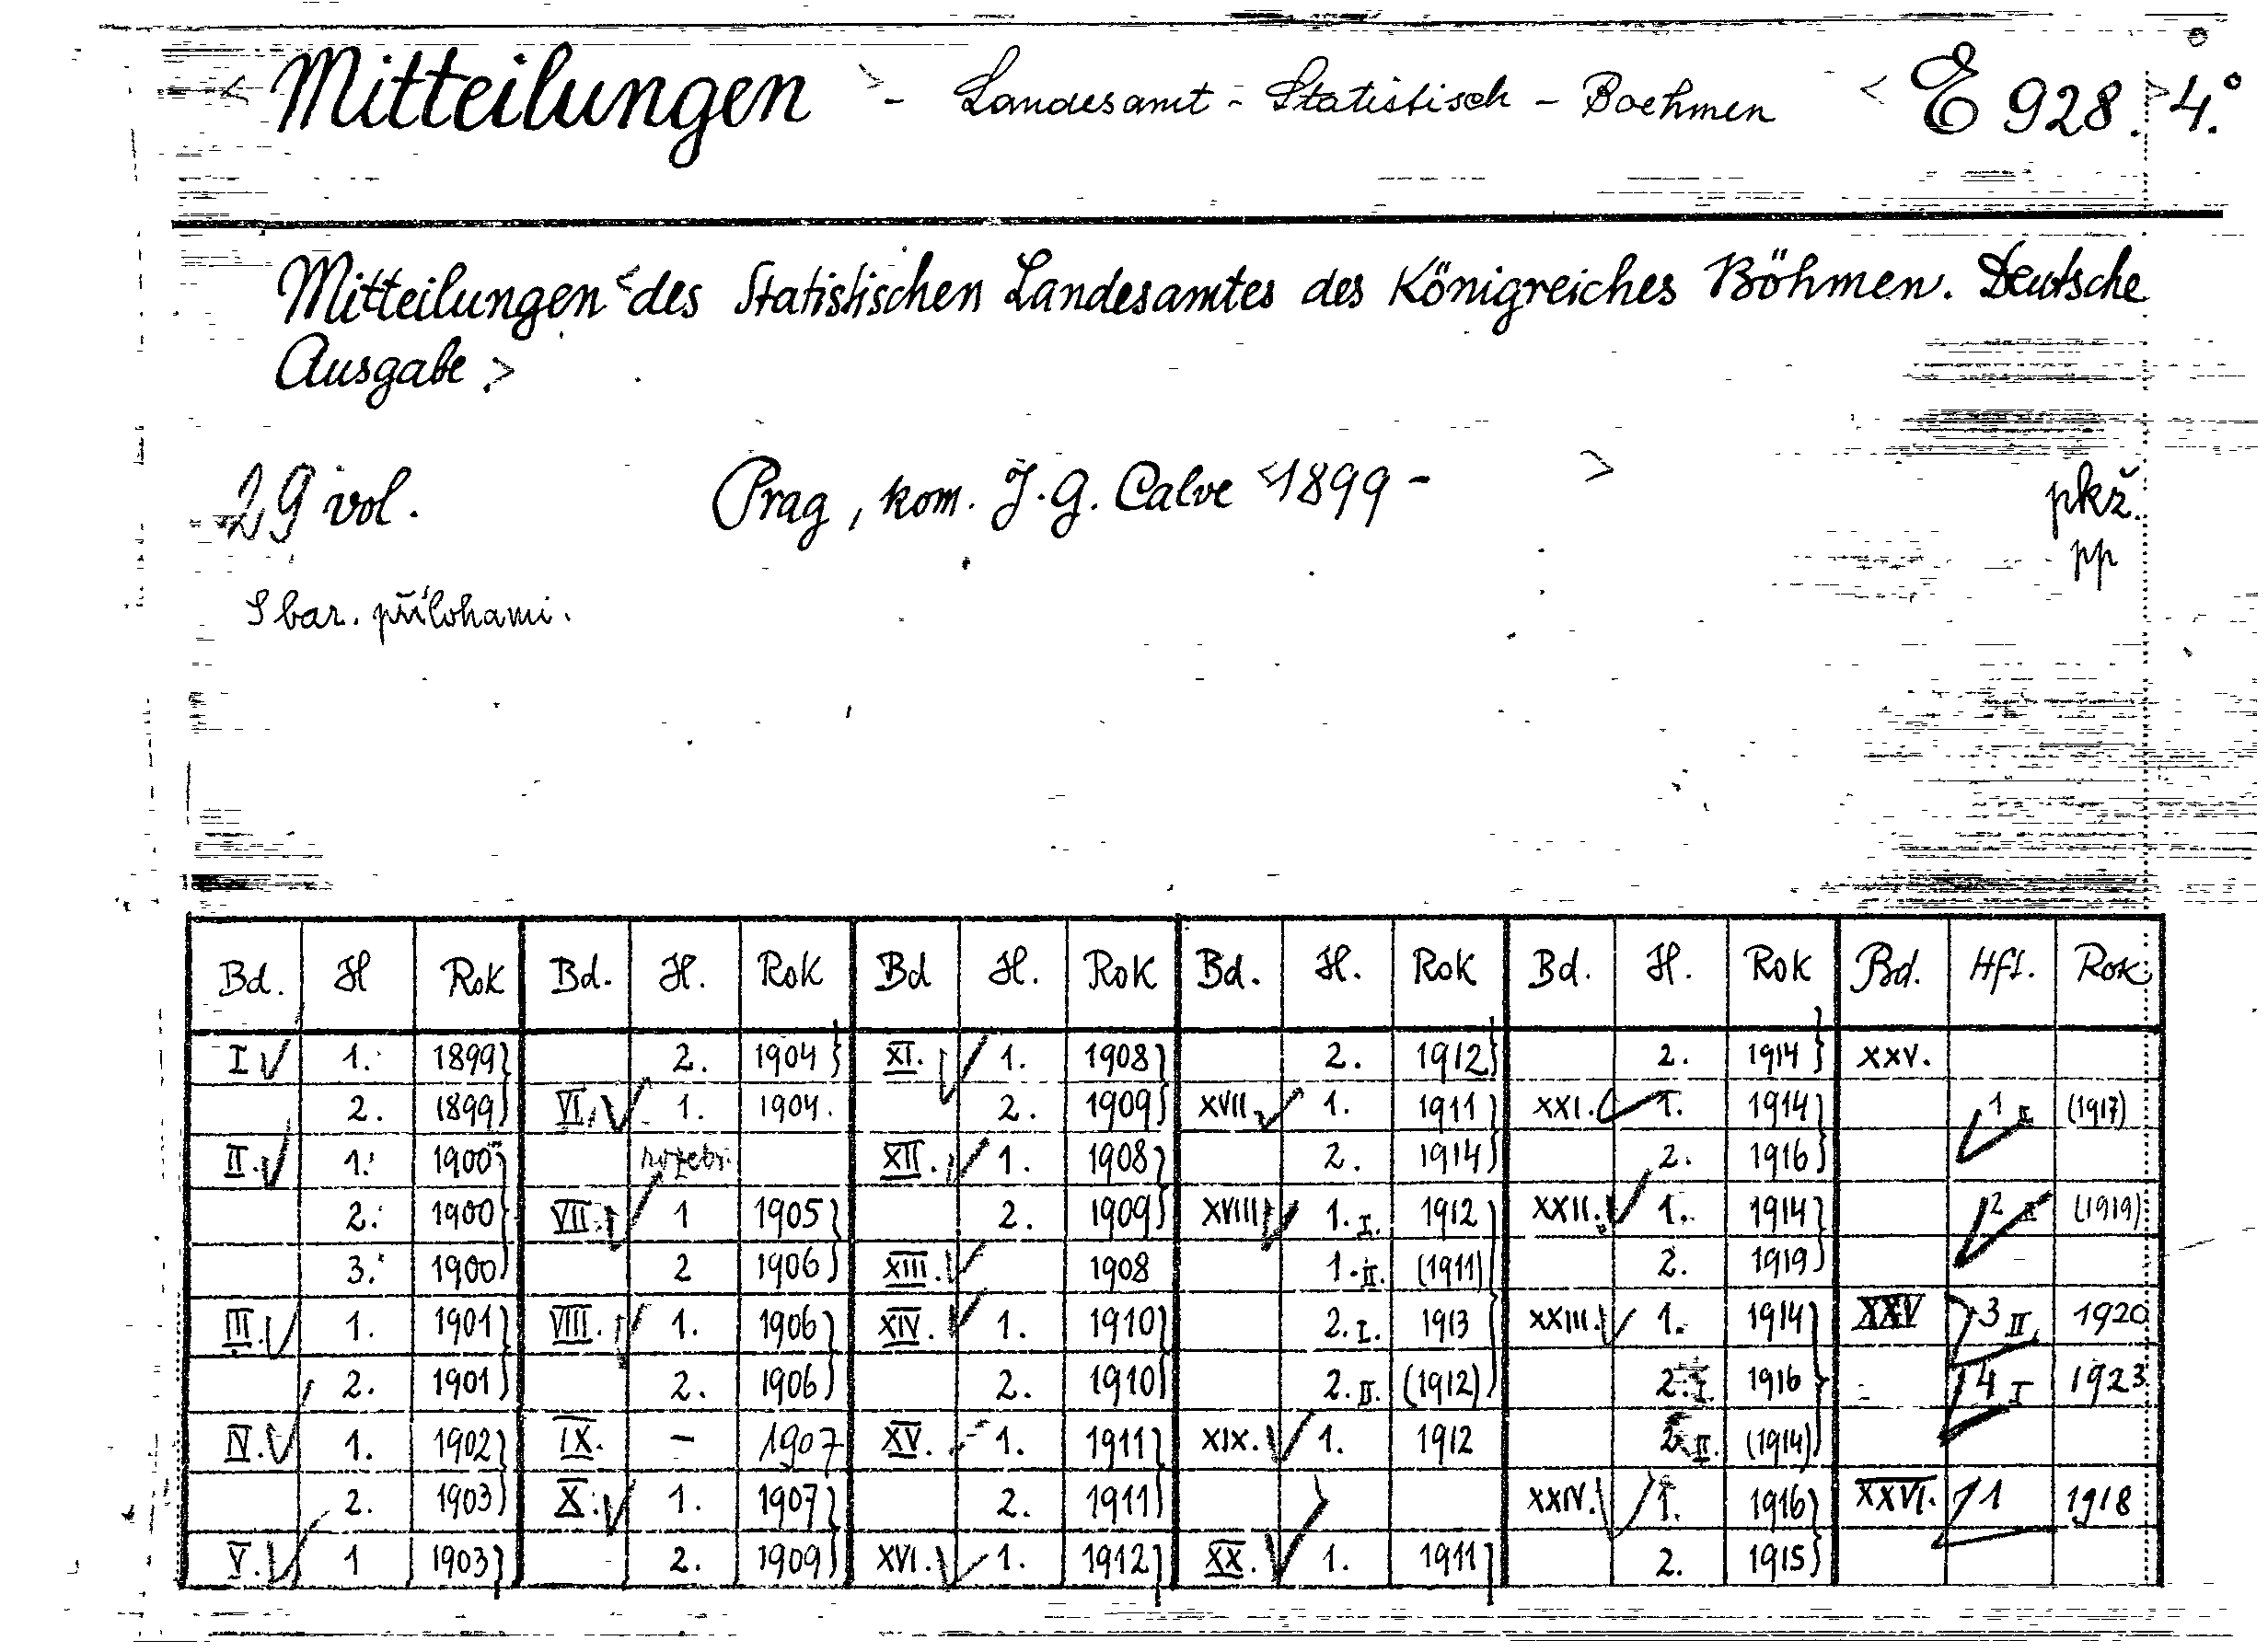 < Mitteilungen > - Landesamt - Statistisch - Boehmen < E 928. > 4.°
Mitteilungen < des Statistischen Landesamtes des Königreiches Böhmen. Deutsche
Ausgabe. >
29 vol. Prag, kom. J. G. Calve <1899 - > pkž.
pp
S bar. přílohami.
Bd. H Rok Bd. H. Rok Bd H. Rok Bd. H. Rok Bd. H. Rok Bd. Hft. Rok
I 1. 1899 2. 1904 XI. 1. 1908 2. 1912 2. 1914 XXV.
2. 1899 VI. 1. 1904. 2. 1909 XVII. 1. 1911 XXI. 1. 1914 1 II (1917)
II. 1. 1900 rozebr. XII. 1. 1908 2. 1914 2. 1916
2. 1900 VII. 1 1905 2. 1909 XVIII 1. I. 1912 XXII. 1. 1914 2 (1919)
3. 1900 2 1906 XIII. 1908 1. II. (1911) 2. 1919
III. 1. 1901 VIII. 1. 1906 XIV. 1. 1910 2. I. 1913 XXIII. 1. 1914 XXV 3 II. 1920
2. 1901 2. 1906 2. 1910 2. II. (1912) 2. I. 1916 4 I 1923
IV. 1. 1902 IX. - 1907 XV. 1. 1911 XIX. 1. 1912 2 II. (1914)
2. 1903 X. 1. 1907 2. 1911 XXIV. 1. 1916 XXVI. 1 1918
V. 1 1903 2. 1909 XVI. 1. 1912 XX. 1. 1911 2. 1915